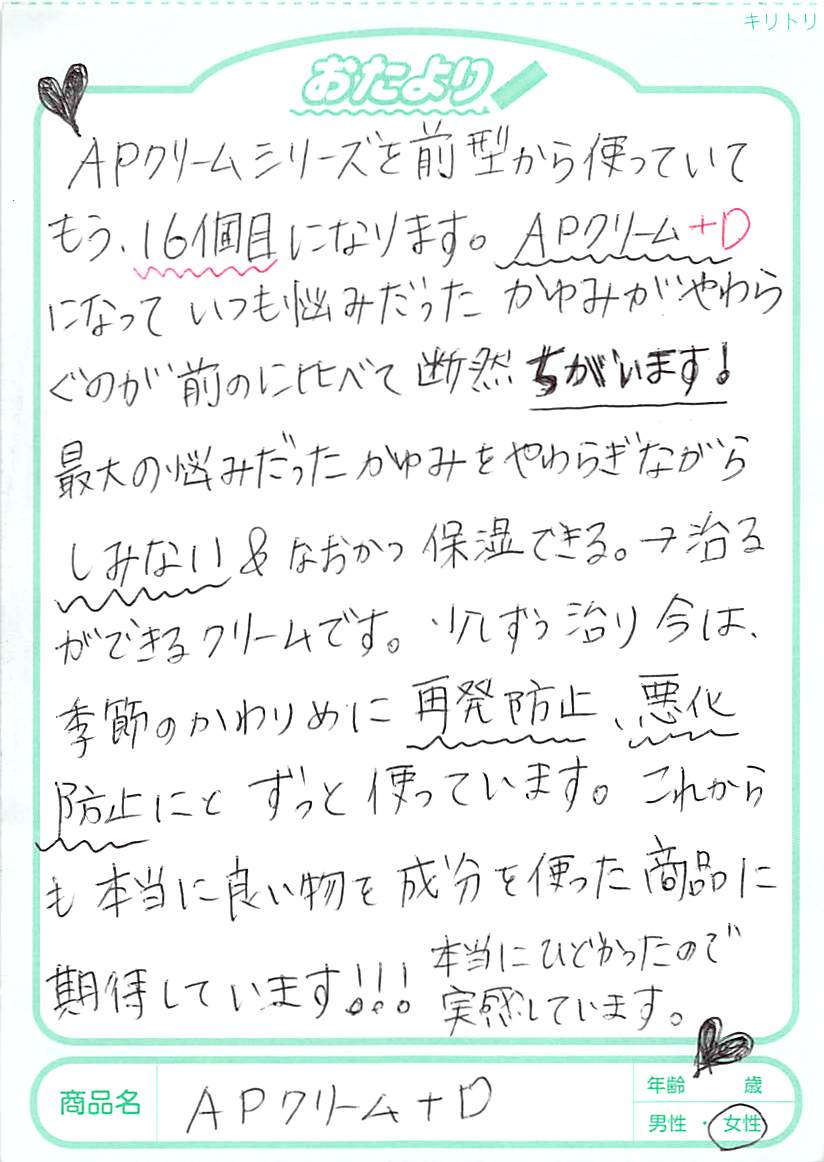 キリトリ
おたより
APクリームシリーズを前型から使っていて
もう、16個目になります。APクリーム+D
になって いつも悩みだった かゆみがやわら
ぐのが前のに比べて断然ちがいます!
最大の悩みだったかゆみをやわらぎながら
しみない&なおかつ保湿できる。→治る
ができるクリームです。少しずつ治り今は、
季節のかわりめに再発防止、悪化
防止にと ずっと使っています。これから
も本当に良い物を成分を使った商品に
期待しています!!!
本当にひどかったので
実感しています。
商品名 APクリーム+D
年齢 歳
男性・女性